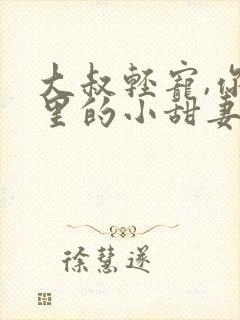 大叔轻宠,你
里的小甜妻
徐慧遂